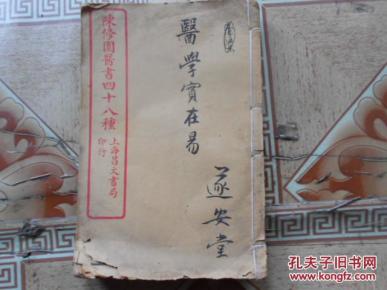 醫學實在易
遂安堂
陳修園醫書四十八種
上海昌文書局
印行
孔夫子旧书网
KONGFZ.COM